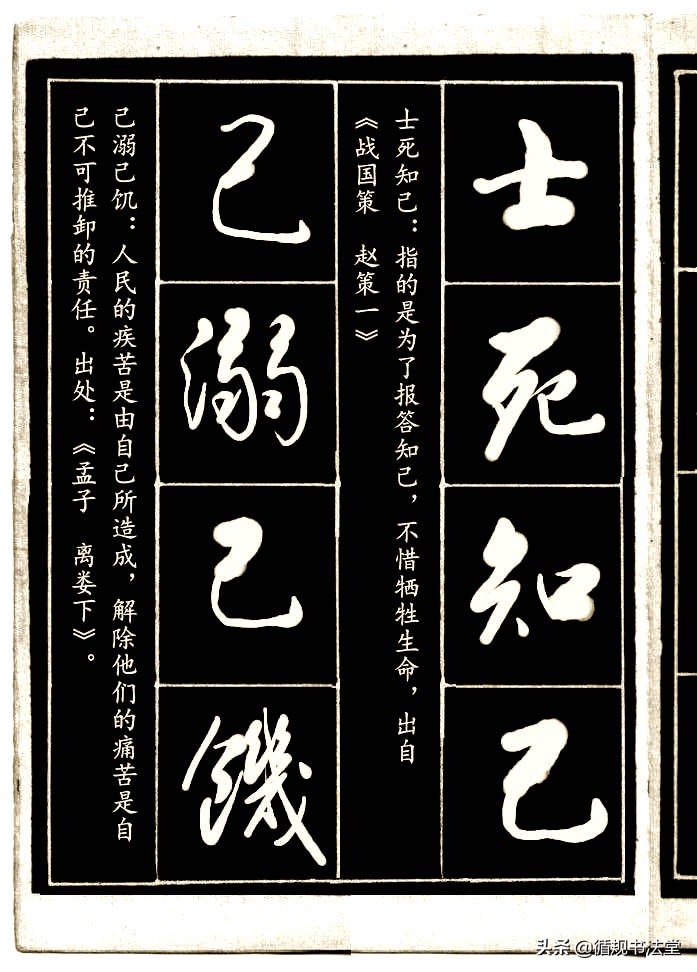 士死知己
士死知己：指的是为了报答知己，不惜牺牲生命，出自
《战国策　赵策一》
己溺己饑
己溺己饥：人民的疾苦是由自己所造成，解除他们的痛苦是自
己不可推卸的责任。出处：《孟子　离娄下》。
头条 @循规书法堂